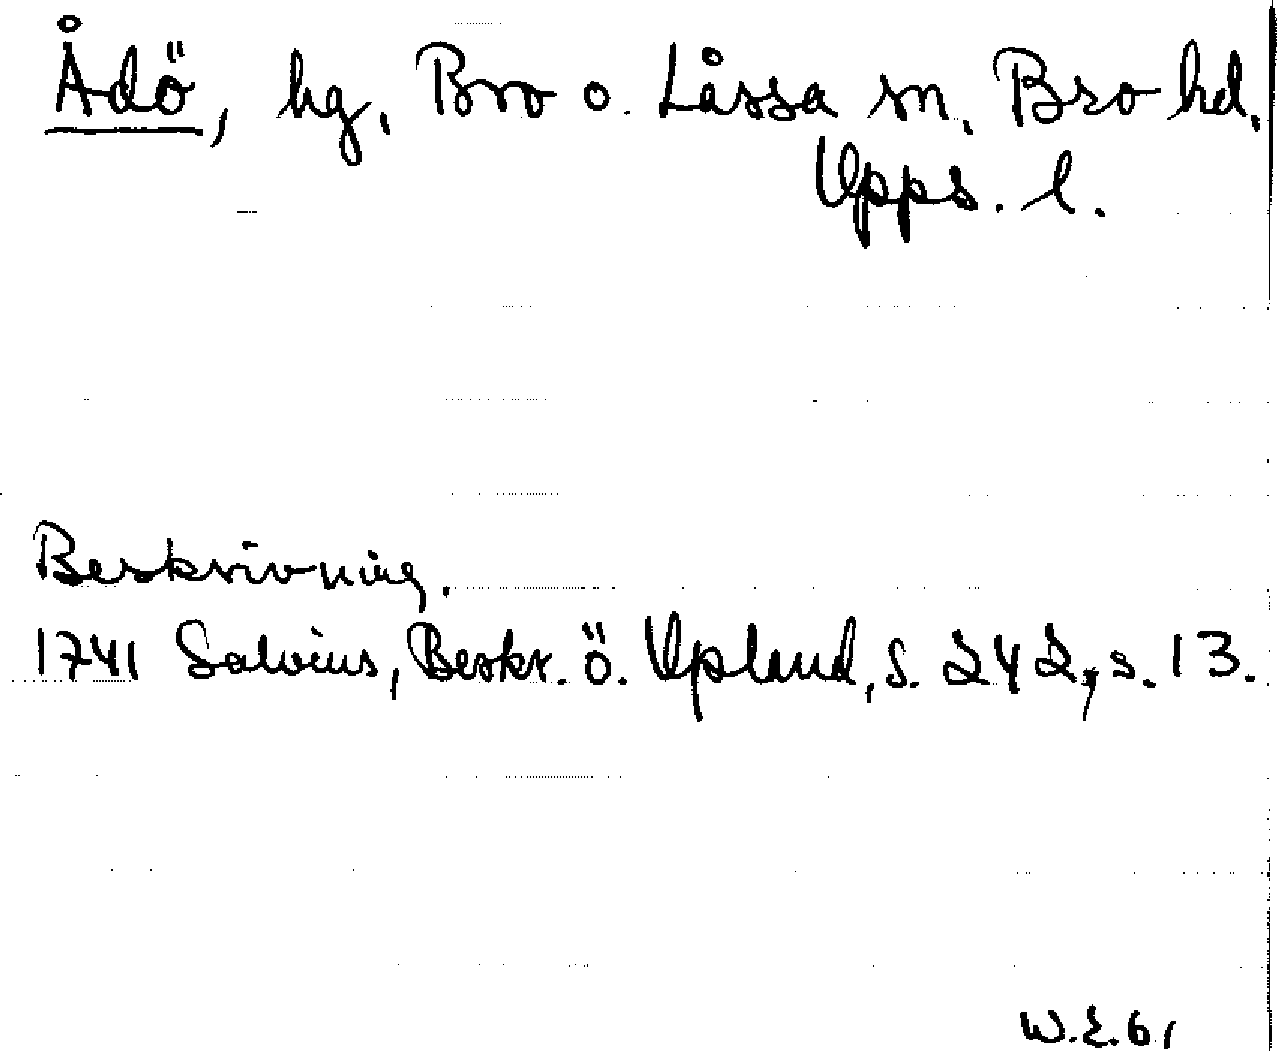 Ådö, hg, Bro o. Låssa sn, Bro hd,
Upps. l.
Beskrivning.
1741 Salvius, Beskr. ö. Upland, s. 242, s. 13.
W.E.61